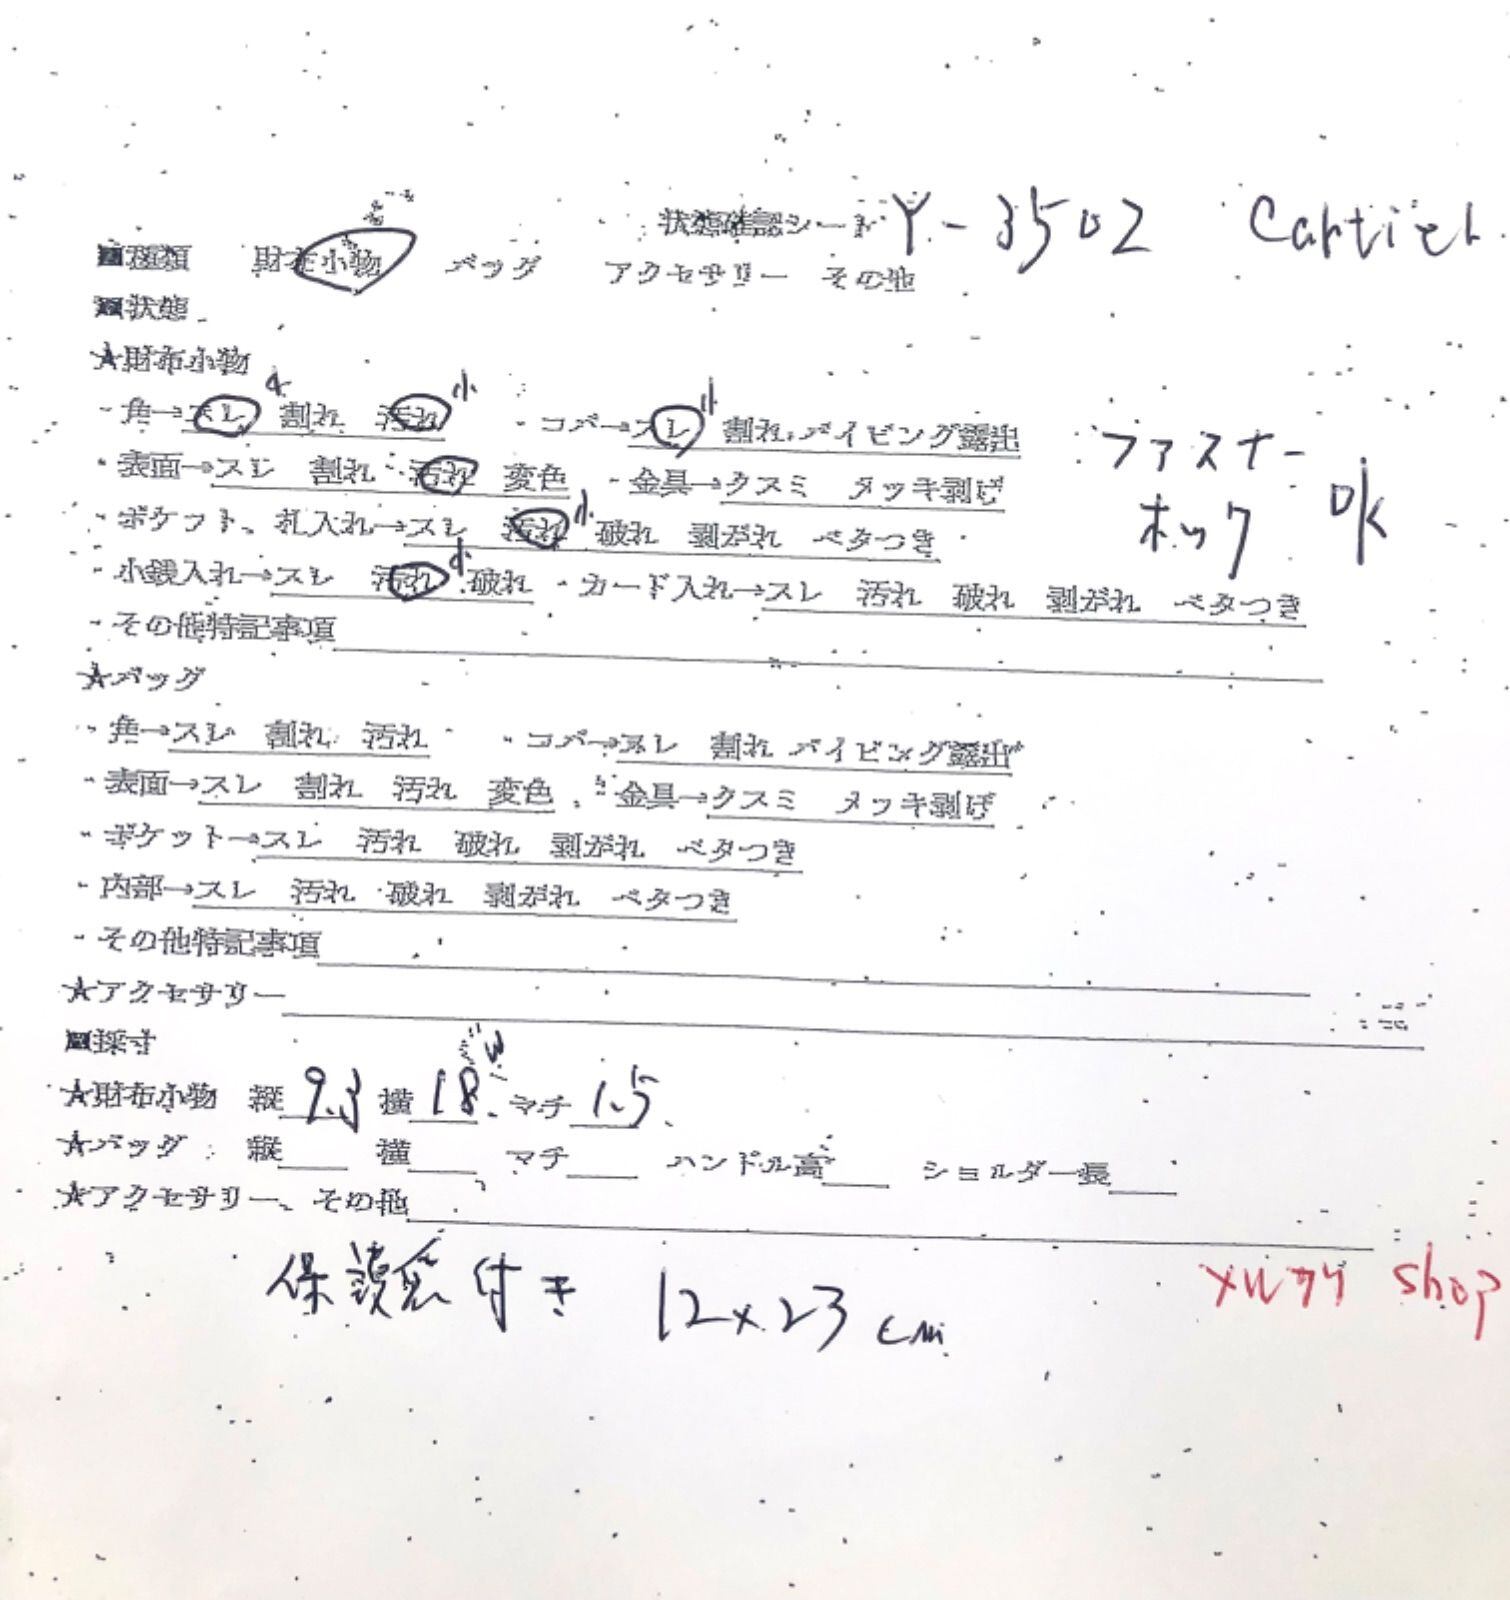 状態確認シート Y-3502 Cartier
■種類 財布小物 バッグ アクセサリー その他
■状態
★財布小物
・角→スレ 小 割れ 汚れ 小 ・コバ→スレ 小 割れ パイピング露出
・表面→スレ 割れ 汚れ 変色 ・金具→クスミ メッキ剥げ
ファスナー
ホック OK
・ポケット、札入れ→スレ 汚れ 小 破れ 剥がれ ベタつき
・小銭入れ→スレ 汚れ 小 破れ ・カード入れ→スレ 汚れ 破れ 剥がれ ベタつき
・その他特記事項
★バッグ
・角→スレ 割れ 汚れ ・コバ→スレ 割れ パイピング露出
・表面→スレ 割れ 汚れ 変色 ・金具→クスミ メッキ剥げ
・ポケット→スレ 汚れ 破れ 剥がれ ベタつき
・内部→スレ 汚れ 破れ 剥がれ ベタつき
・その他特記事項
★アクセサリー
■採寸
★財布小物 縦 9.3 横 18. マチ 1.5
★バッグ 縦 横 マチ ハンドル高 ショルダー長
★アクセサリー、その他
付き 12×23cm
メルカリ shop